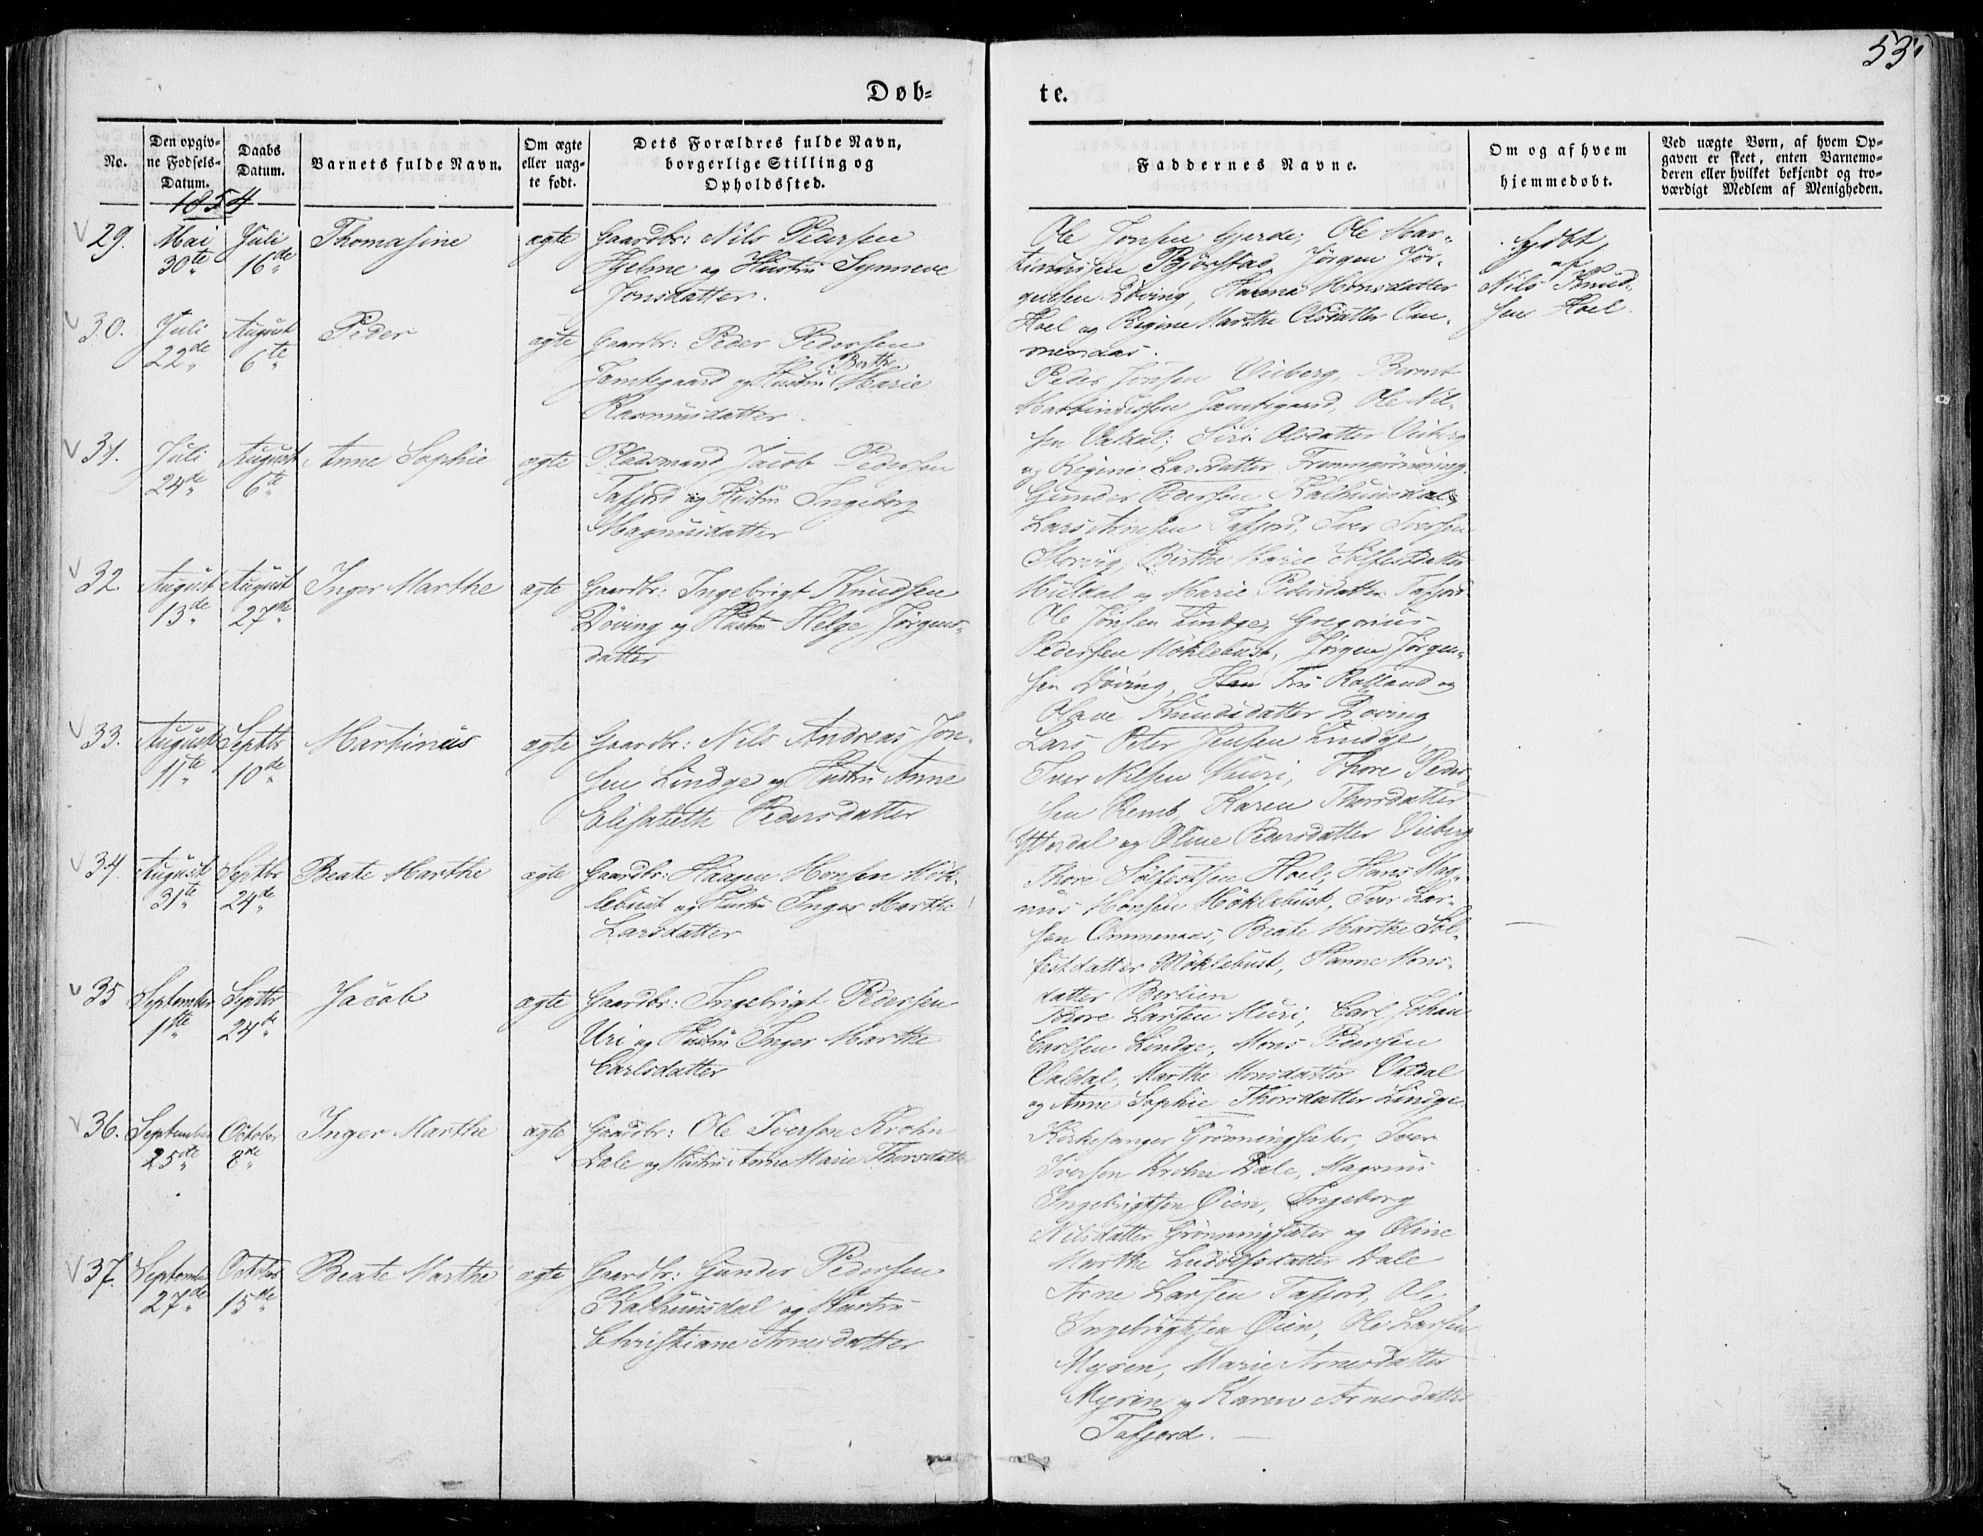 53.
Døb-
te.
No.
Den opgiv-
ne Fødsels-
Datum.
Daabs
Datum.
Barnets fulde Navn.
Om ægte
eller uæg-
te født.
Dets Forældres fulde Navn,
borgerlige Stilling og
Opholdssted.
Faddernes Navne.
Om og af hvem
hjemmedøbt.
Ved uægte Børn, af hvem Op-
gaven er skeet, enten Barnemo-
deren eller hvilket bekjendt og tro-
værdigt Medlem af Menigheden.
1854
29.
Mai
30te
Juli
16de
Thomasine
ægte
Gaardbr: Nils Pedersen
Hjelme og Hustru Synneve
Jonsdatter.
Ole Jonsen Gjerde, Ole Mar-
tinussen Bjørstad, Jørgen Jør-
gensen Døving, Hanna Monsdatter
Hoel og Regine Marthe Olsdatter Om-
menaas.
hjdøbt
af
Nils Knud-
sen Hoel.
30.
Juli
22de
August
6te
Peder
ægte
Gaardbr: Peder Pedersen
Jamtegaard og Hustru Berthe Marie
Rasmusdatter.
Peder Jonsen Uriberg, Bernt
Martinussen Jamtegaard, Ole Nil-
sen Valdal, Siri Olsdatter
og Regine Larsdatter
31.
Juli
24de
August
6te
Anne Sophie
ægte
Pladsmand Jacob Pedersen
Tafjord og Hustru Ingeborg
Magnusdatter
Gunder Pedersen Kalhuusdal,
Lars Arnesen Tafjord, Iver Iversen
Storvig, Berthe Marie Sølfestdatter
Muldal og Marie Pedersdatter Tafjord
32.
August
13de
August
27de
Inger Marthe
ægte
Gaardbr: Ingebrigt Knudsen
Døving og Hustru Helge Jørgens-
datter
Ole Jonsen Lindge, Gregorius
Pedersen Møklebust, Jørgen Jørgen-
sen Døving, Fru Kalland og
Olave Knudsdatter Døving
33.
August
11te
Septbr
10de
Martinus
ægte
Gaardbr: Nils Andreas Jon-
sen Lindge og Hustru Anne
Elisabeth Pedersdatter
Lars Peter Jensen Lindge
Iver Nilsen Muri, Thore Peder-
sen Remb, Karen Thorsdatter
Yttredal og Oline Pedersdatter
34.
August
31te
Septbr
24de
Beate Marthe
ægte
Gaardbr: Haagen Monsen Møk-
lebust og Hustru Inger Marthe
Larsdatter
Thore Sølfestsen Hoel, Hans Mag-
nus Monsen Møklebust, Iver Lar-
sen Ommenaas, Beate Marthe Søl-
festdatter Møklebust, Hanne Mons-
datter Berlien
35
September
1ste
Septbr
24de
Jacob
ægte
Gaardbr: Ingebrigt Pedersen
Uri og Hustru Inger Marthe
Carlsdatter
Thore Larsen Muri, Carl Johan
Carlsen Lindge, Mons Pedersen
Valdal, Marthe Monsdatter Valdal
og Anne Sophie Thorsdatter Lindge.
36.
September
25de
October
8de
Inger Marthe
ægte
Gaardbr: Ole Iversen Krohn
Dale og Hustru Anne Marie Thorsdatter
Kirkesanger Grønningsæter, Iver
Iversen Krohn Dale, Magnus
Ingebrigtsen Øien, Ingeborg
Nilsdatter Grønningsæter og Oline
Marthe Ludolfsdatter Dale
37.
September
27de
October
15de
Beate Marthe
ægte
Gaardbr: Gunder Pedersen
Kalhuusdal og Hustru
Christiane Arnesdatter
Arne Larsen Tafjord, Ole
Ingebrigtsen Øien, Ole Larsen
Myren, Marie Arnesdatter
Myren og Karen Arnesdatter
Tafjord.